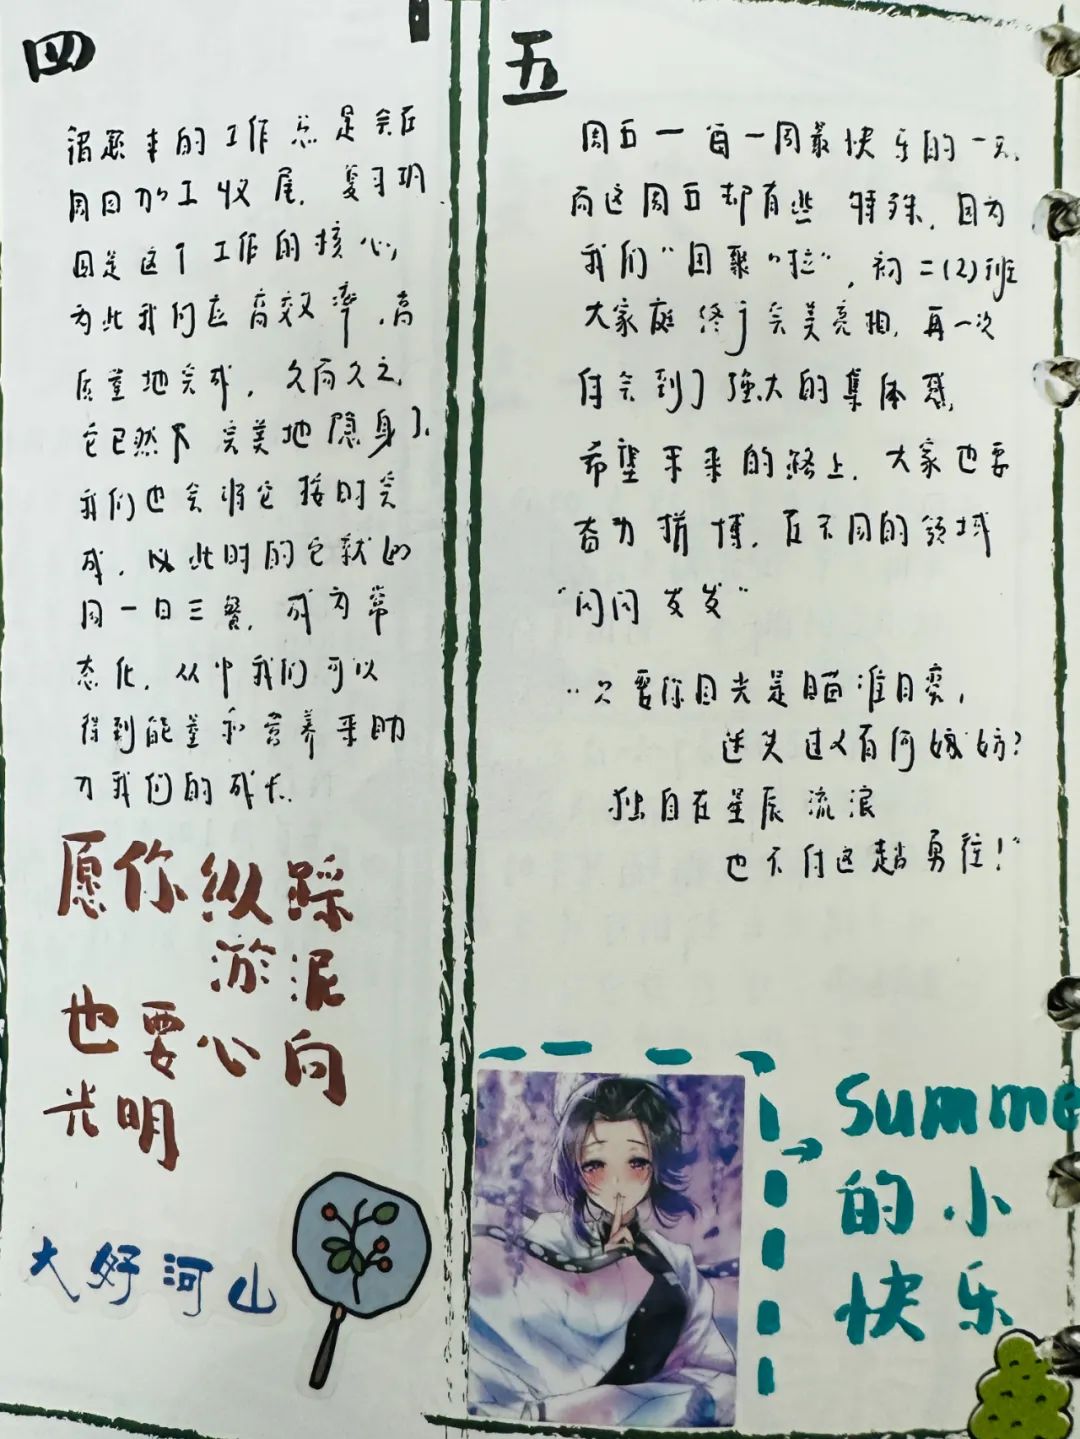 四
错题本的工作总是会在
周四加工收尾，夏习玥
因是这个工作的核心，
为此我们在高效率，高
质量地完成，久而久之，
它已然不完美地隐身了，
我们也会将它按时完
成，以此时的它就如
同一日三餐，成为常
态化，从中我们可以
得到能量和营养来助
力我们的成长．
愿你纵踩
淤泥
也要心向
光明
大好河山
五
周五一旨一周最快乐的一天，
而这周五却有些特殊，因为
我们“团聚”啦“，初二(2)班
大家庭终于会美亮相，再一次
体会到了强大的集体感，
希望未来的路上，大家也要
奋力拼搏，在不同的领域
“闪闪发发”
“只要你目光是瞄准目奕，
迷失过又有何妨？
独自在星辰流浪
也不付这趟勇往！”
Summe
的小
快乐